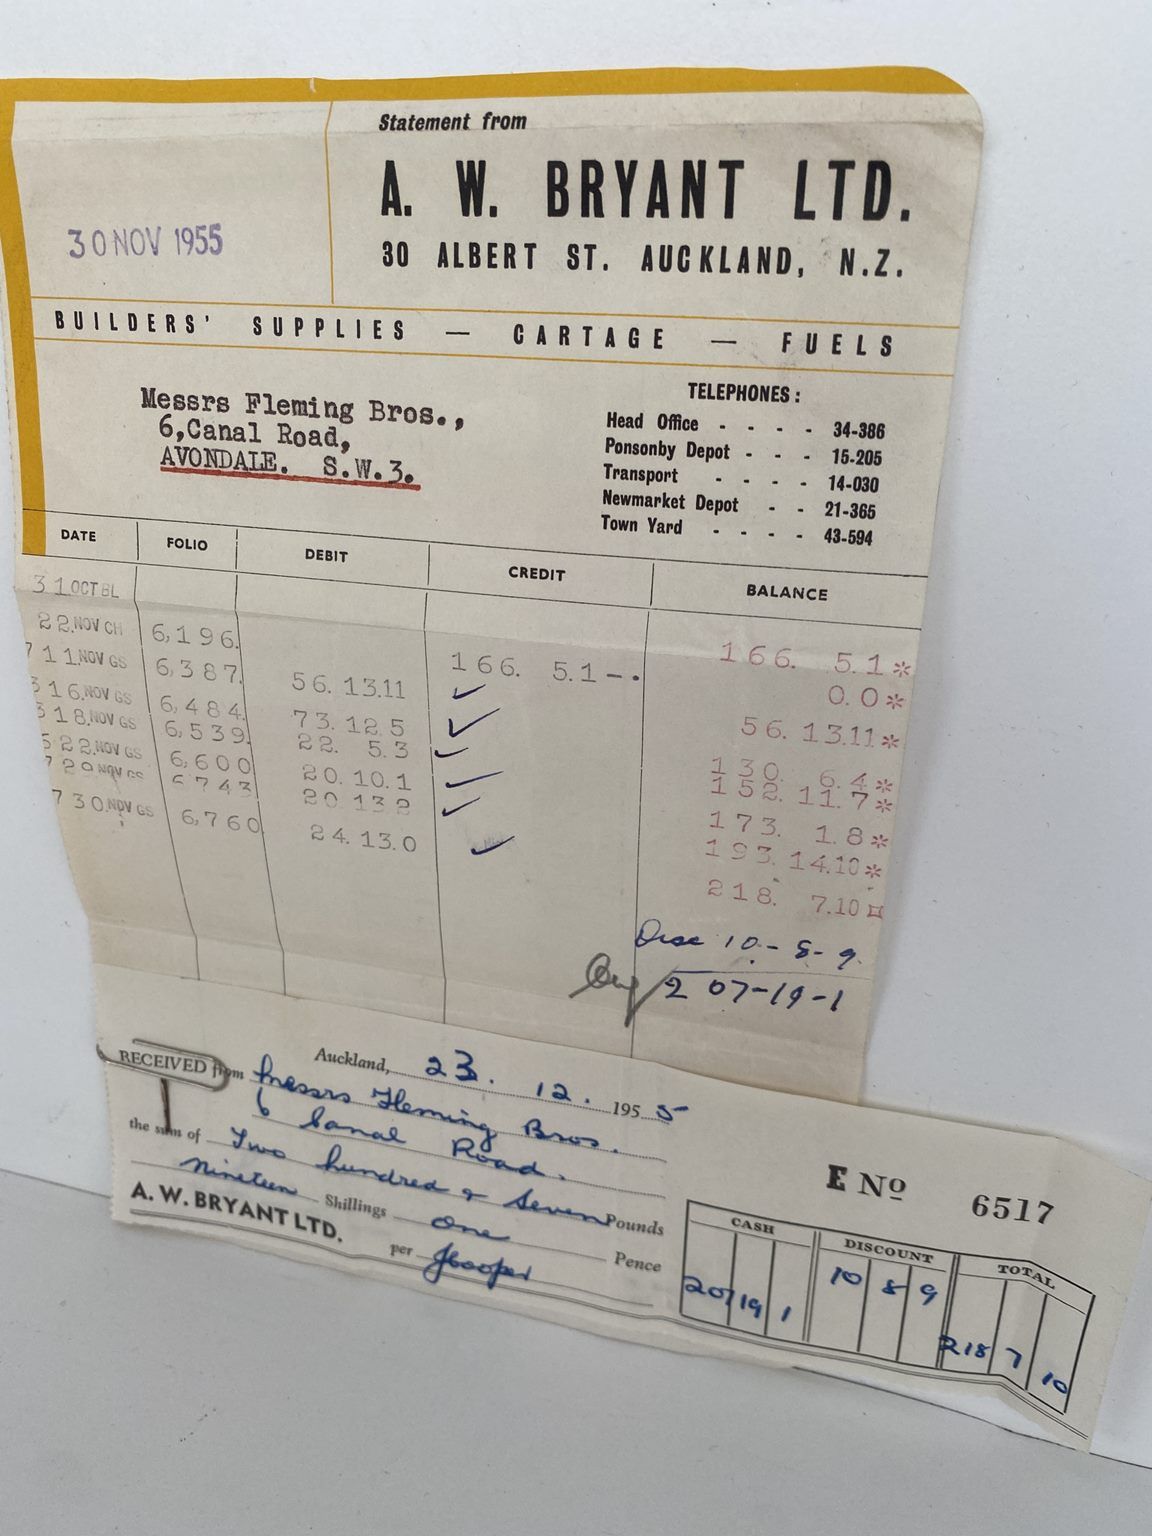 Statement from
A. W. BRYANT LTD.
30 ALBERT ST. AUCKLAND, N.Z.
30 NOV 1955
BUILDERS' SUPPLIES — CARTAGE — FUELS
Messrs Fleming Bros.,
6,Canal Road,
AVONDALE. S.W.3.
TELEPHONES:
Head Office - - - - 34-386
Ponsonby Depot - - - 15-205
Transport - - - - 14-030
Newmarket Depot - - 21-365
Town Yard - - - - 43-594
DATE FOLIO DEBIT CREDIT BALANCE
31 OCT BL 166. 5.1 *
22. NOV CH 6,196. 166. 5.1 -. 0.0 *
7 11. NOV GS 6,387. 56.13.11 56.13.11 *
3 16. NOV GS 6,484. 73.12.5 130. 6.4 *
3 18. NOV GS 6,539. 22. 5.3 152.11.7 *
5 22. NOV GS 6,600 20.10.1 173. 1.8 *
7 29 NOV GS 6743 20.13.2 193.14.10 *
7 30. NOV GS 6,760 24.13.0 218. 7.10
Disc 10 - 8 - 9
207-19-1
Auckland, 23. 12. 1955
RECEIVED from Messrs Fleming Bros.
6 Canal Road.
the sum of Two hundred & Seven Pounds
Nineteen Shillings One Pence
A. W. BRYANT LTD.
per JCooper
E No 6517
CASH DISCOUNT TOTAL
207 19 1 10 8 9 218 7 10